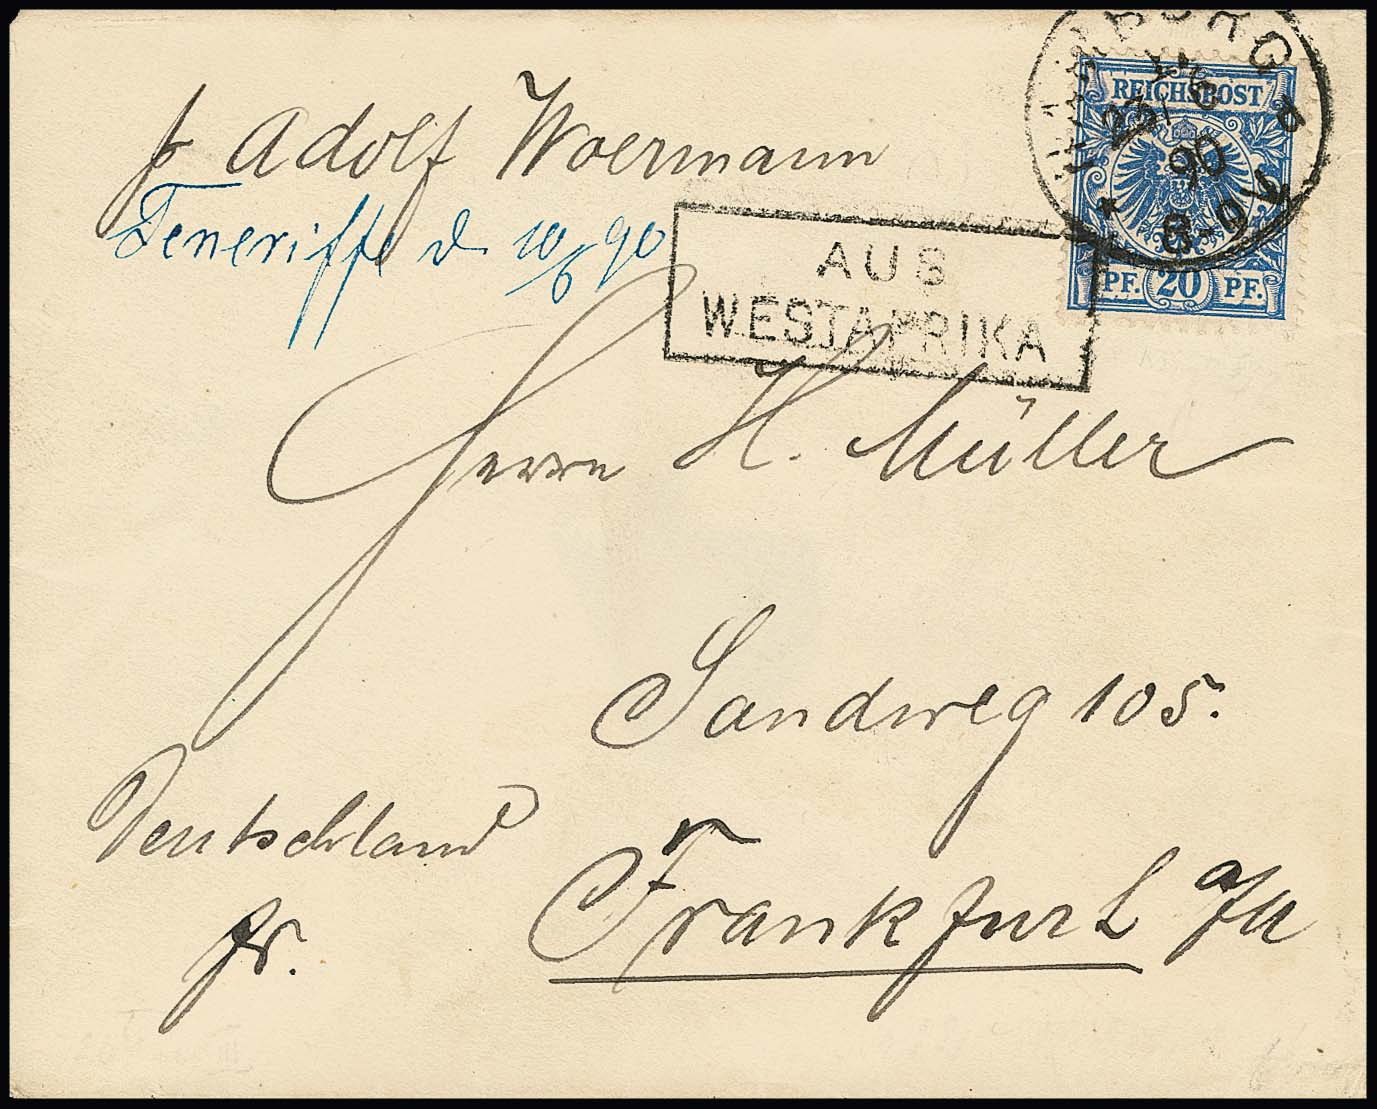 p Adolf Woermann
Teneriffe d 10/6 90
HAMBURG
23/6
90
8-9V
REICHSPOST
PF. 20 PF.
AUS
WESTAFRIKA
Herrn H. Müller
Sandweg 105.
Deutschland
Frankfurt a/M
fr.